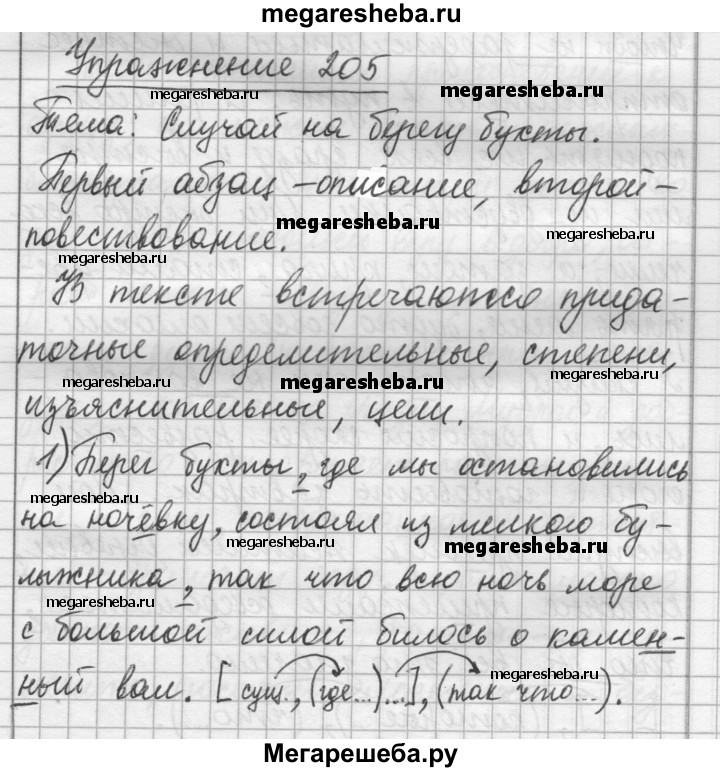 megaresheba.ru
Упражнение 205
megaresheba.ru
megaresheba.ru
Тема: Случай на берегу бухты.
Первый абзац - описание, второй -
megaresheba.ru
повествование.
megaresheba.ru
megaresheba.ru
В тексте встречаются прида-
точные определительные, степени,
megaresheba.ru
megaresheba.ru
megaresheba.ru
изъяснительные, цели.
1) Берег бухты, где мы остановились
megaresheba.ru
на ночёвку, состоял из мелкого бу-
megaresheba.ru
megaresheba.ru
лыжника, так что всю ночь море
megaresheba.ru
с большой силой билось о камен-
ный вал. [сущ., (где...)...], (так что...).
megaresheba.ru
Мегарешеба.ру